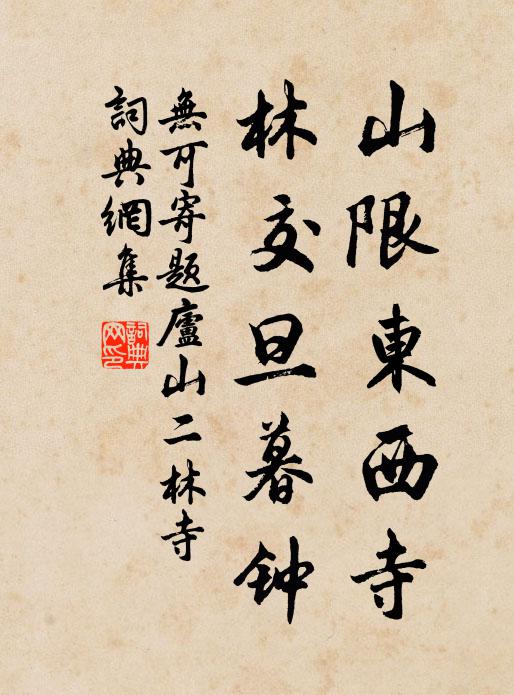 山限東西寺
林交旦暮钟
無可寄题廬山二林寺
詞典網集
詞典
网印